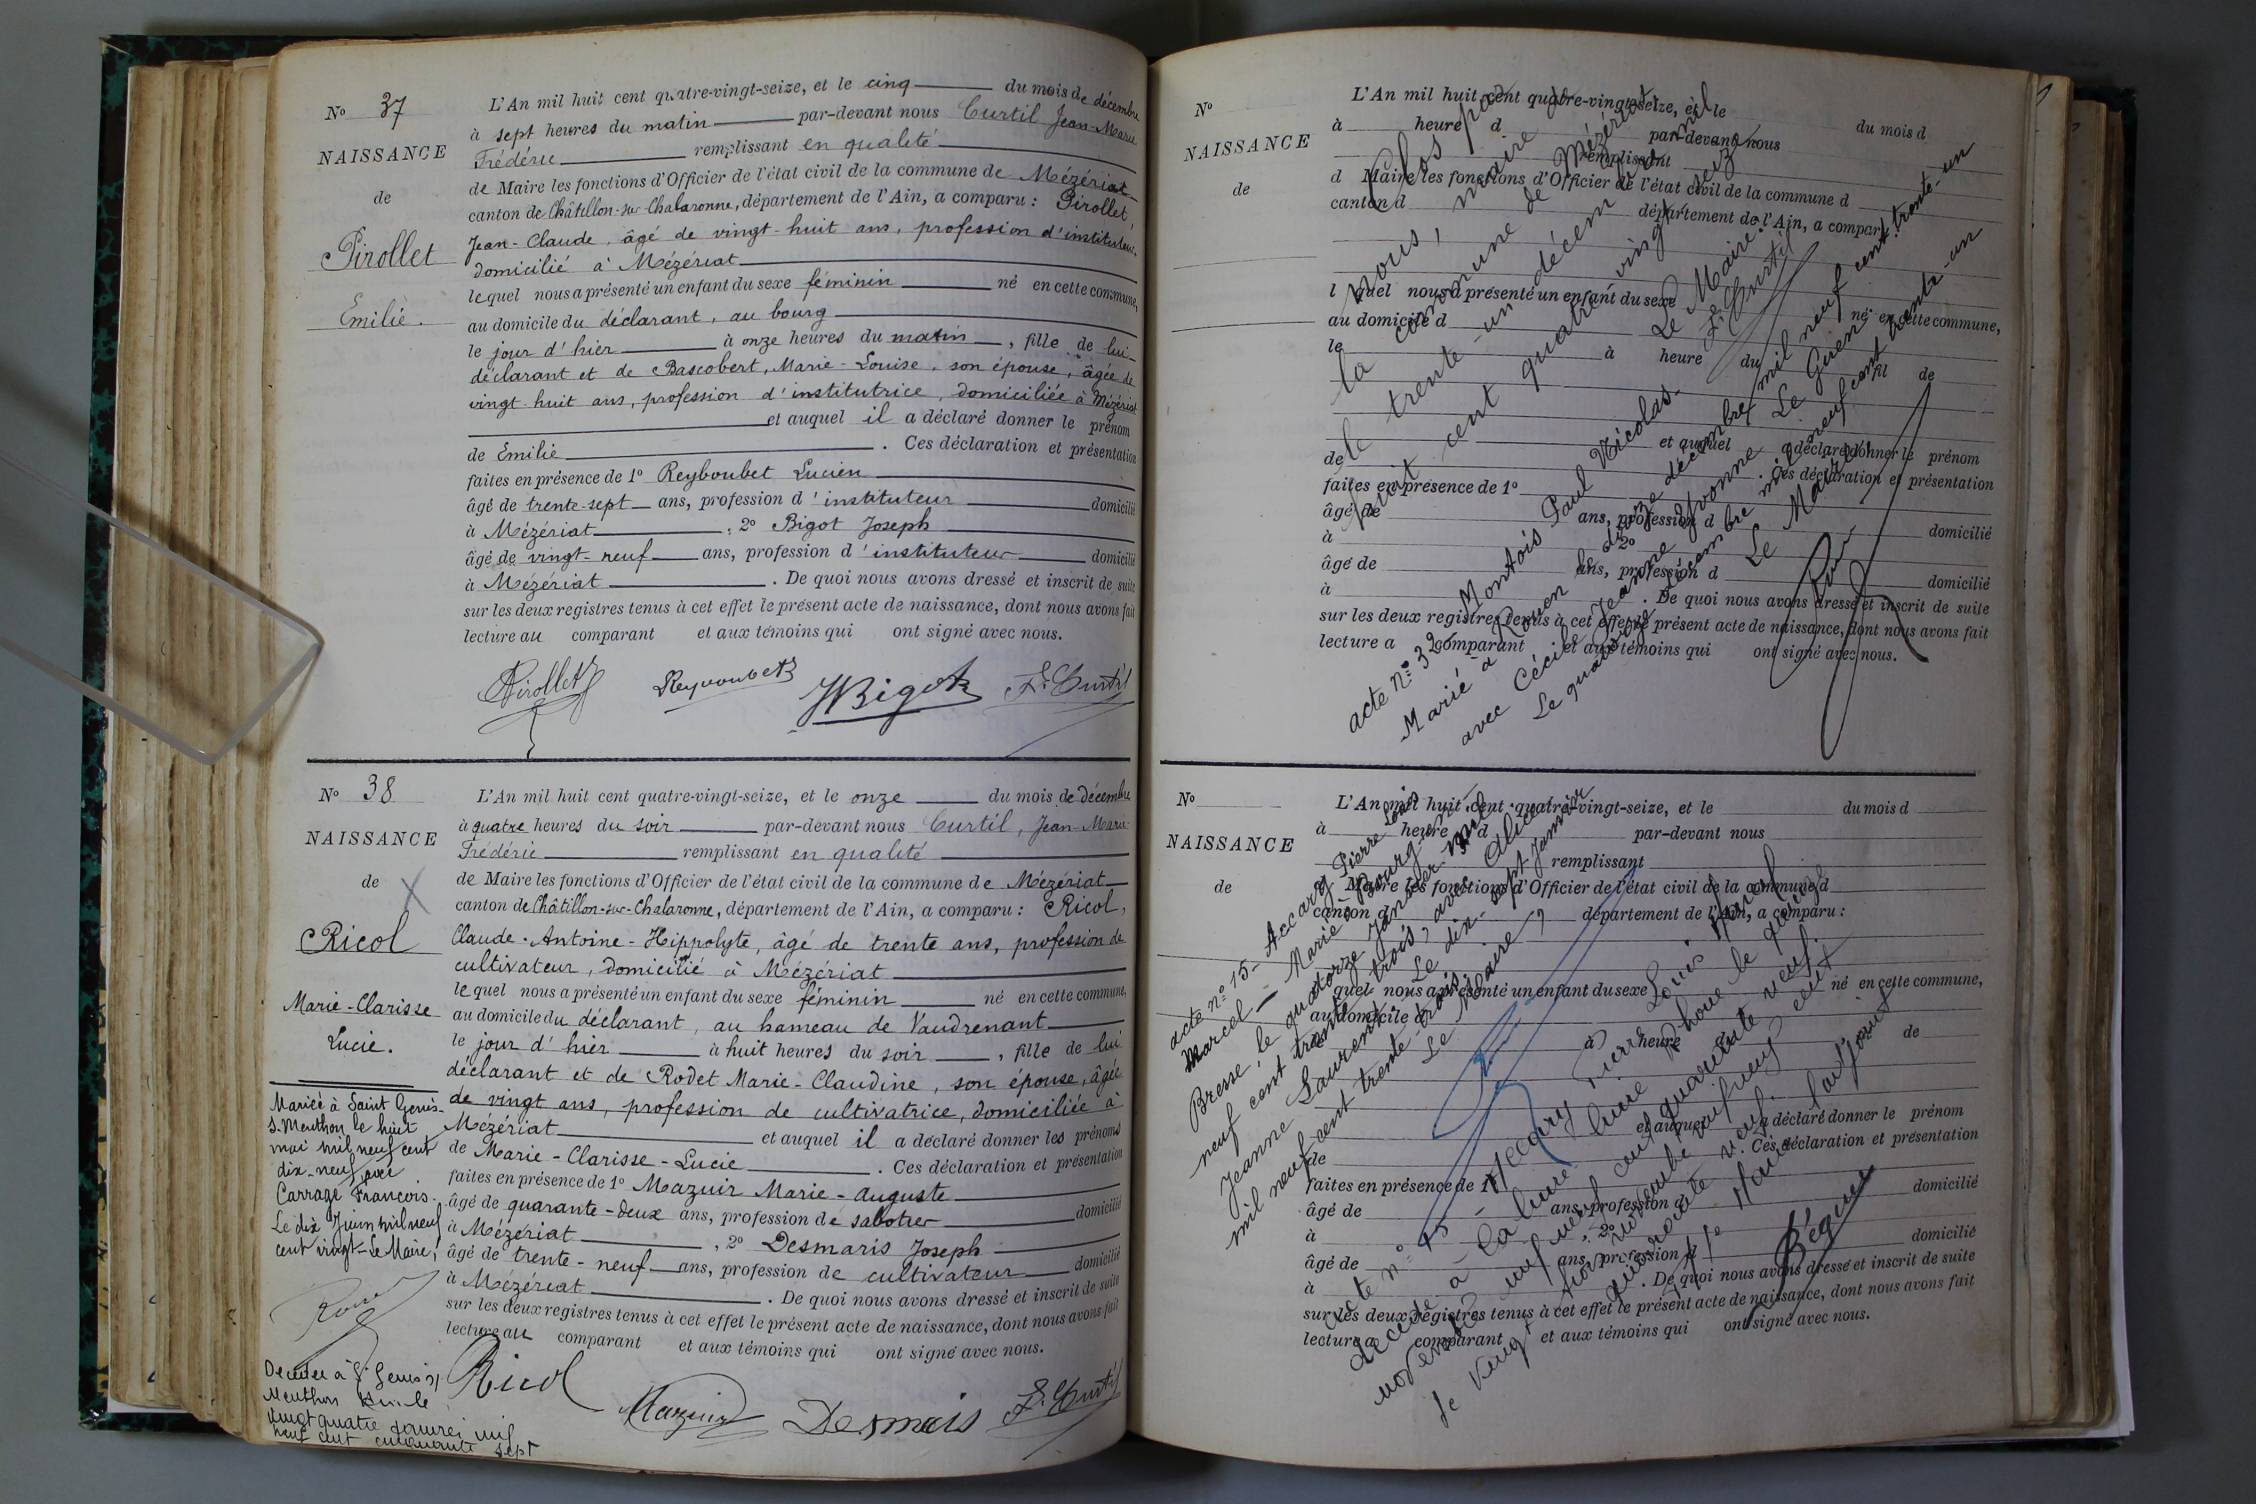 N° 37
NAISSANCE
de
Pirollet
Emilie.
L'An mil huit cent quatre-vingt-seize, et le cinq du mois de décembre
à sept heures du matin par-devant nous Curtil Jean-Marie
Frédéric remplissant en qualité
de Maire les fonctions d'Officier de l'état civil de la commune de Mézériat
canton de Châtillon-sur-Chalaronne, département de l'Ain, a comparu : Pirollet
Jean-Claude, âgé de vingt-huit ans, profession d'instituteur
domicilié à Mézériat
lequel nous a présenté un enfant du sexe féminin né en cette commune,
au domicile du déclarant, au bourg
le jour d'hier à onze heures du matin, fille de lui
déclarant et de Bascobert, Marie-Louise, son épouse, âgée de
vingt-huit ans, profession d'institutrice, domiciliée à Mézériat
et auquel il a déclaré donner le prénom
de Emilie. Ces déclaration et présentation
faites en présence de 1° Reyboubet Lucien
âgé de trente-sept ans, profession d'instituteur domicilié
à Mézériat, 2° Bigot Joseph
âgé de vingt-neuf ans, profession d'instituteur domicilié
à Mézériat. De quoi nous avons dressé et inscrit de suite
sur les deux registres tenus à cet effet le présent acte de naissance, dont nous avons fait
lecture au comparant et aux témoins qui ont signé avec nous.
Pirollet Reyboubet JBigot F. Curtil
N° 38
NAISSANCE
de
Ricol
Marie-Clarisse
Lucie.
L'An mil huit cent quatre-vingt-seize, et le onze du mois de décembre
à quatre heures du soir par-devant nous Curtil, Jean-Marie
Frédéric remplissant en qualité
de Maire les fonctions d'Officier de l'état civil de la commune de Mézériat
canton de Châtillon-sur-Chalaronne, département de l'Ain, a comparu : Ricol,
Claude-Antoine-Hippolyte, âgé de trente ans, profession de
cultivateur, domicilié à Mézériat
lequel nous a présenté un enfant du sexe féminin né en cette commune,
au domicile du déclarant, au hameau de Vaudrenant
le jour d'hier à huit heures du soir, fille de lui
déclarant et de Rodet Marie-Claudine, son épouse, âgée
de vingt ans, profession de cultivatrice, domiciliée à
Mézériat et auquel il a déclaré donner les prénoms
de Marie-Clarisse-Lucie. Ces déclaration et présentation
faites en présence de 1° Mazuir Marie-Auguste
âgé de quarante-deux ans, profession de sabotier domicilié
à Mézériat, 2° Desmaris Joseph
âgé de trente-neuf ans, profession de cultivateur domicilié
à Mézériat. De quoi nous avons dressé et inscrit de suite
sur les deux registres tenus à cet effet le présent acte de naissance, dont nous avons fait
lecture au comparant et aux témoins qui ont signé avec nous.
Ricol Mazuir Desmaris F. Curtil
Mariée à Saint Genis-
s. Menthon le huit
mai mil neuf cent
dix-neuf avec
Carrage François.
Le dix Juin mil neuf
cent vingt - Le Maire,
Décédée à St Genis s/
Menthon le
vingt quatre mil
neuf cent cinquante sept
N°
NAISSANCE
de
L'An mil huit cent quatre-vingt-seize, et le du mois d
à heure d par-devant nous
remplissant
d Maire les fonctions d'Officier de l'état civil de la commune d
canton d département de l'Ain, a comparu :
l quel nous a présenté un enfant du sexe né en cette commune,
au domicile d
le à heure du fil de
et auquel a déclaré donner le prénom
de Ces déclaration et présentation
faites en présence de 1°
âgé de ans, profession d domicilié
à 2°
âgé de ans, profession d domicilié
à . De quoi nous avons dressé et inscrit de suite
sur les deux registres tenus à cet effet le présent acte de naissance, dont nous avons fait
lecture a comparant et aux témoins qui ont signé avec nous.
Clos par
nous, maire de
la commune de Mézériat
le trente-un décembre mil
huit cent quatre vingt seize
Le Maire:
F. Curtil
acte n° 32 Montois Paul Nicolas.
Marié à Rouen le douze décembre mil neuf cent trente-un
avec Cécile Jeanne Yvonne Le Guen
Le quatorze décembre mil neuf cent trente-un
Le Maire
N°
NAISSANCE
de
L'An mil huit cent quatre-vingt-seize, et le du mois d
à heure d par-devant nous
remplissant
Maire les fonctions d'Officier de l'état civil de la commune d
canton d département de l'Ain, a comparu :
quel nous a présenté un enfant du sexe né en cette commune,
au domicile d
à heure de
et auquel a déclaré donner le prénom
de Ces déclaration et présentation
faites en présence de 1°
âgé de ans, profession d domicilié
à , 2°
âgé de ans, profession d domicilié
à . De quoi nous avons dressé et inscrit de suite
sur les deux registres tenus à cet effet le présent acte de naissance, dont nous avons fait
lecture a comparant et aux témoins qui ont signé avec nous.
acte n° 15 - Accary Pierre Louis
Marcel - Marié à Bourg-en-
Bresse, le quatorze janvier mil
neuf cent trente trois, avec Alice
Jeanne Laurent. Le dix-sept Janvier
mil neuf cent trente trois,
Le Maire,
acte n° 15 - Accary Pierre Louis Marcel
décédé à Rhône le quinze
novembre mil neuf cent quarante neuf.
Le vingt novembre mil neuf cent
quarante neuf.
Béguin